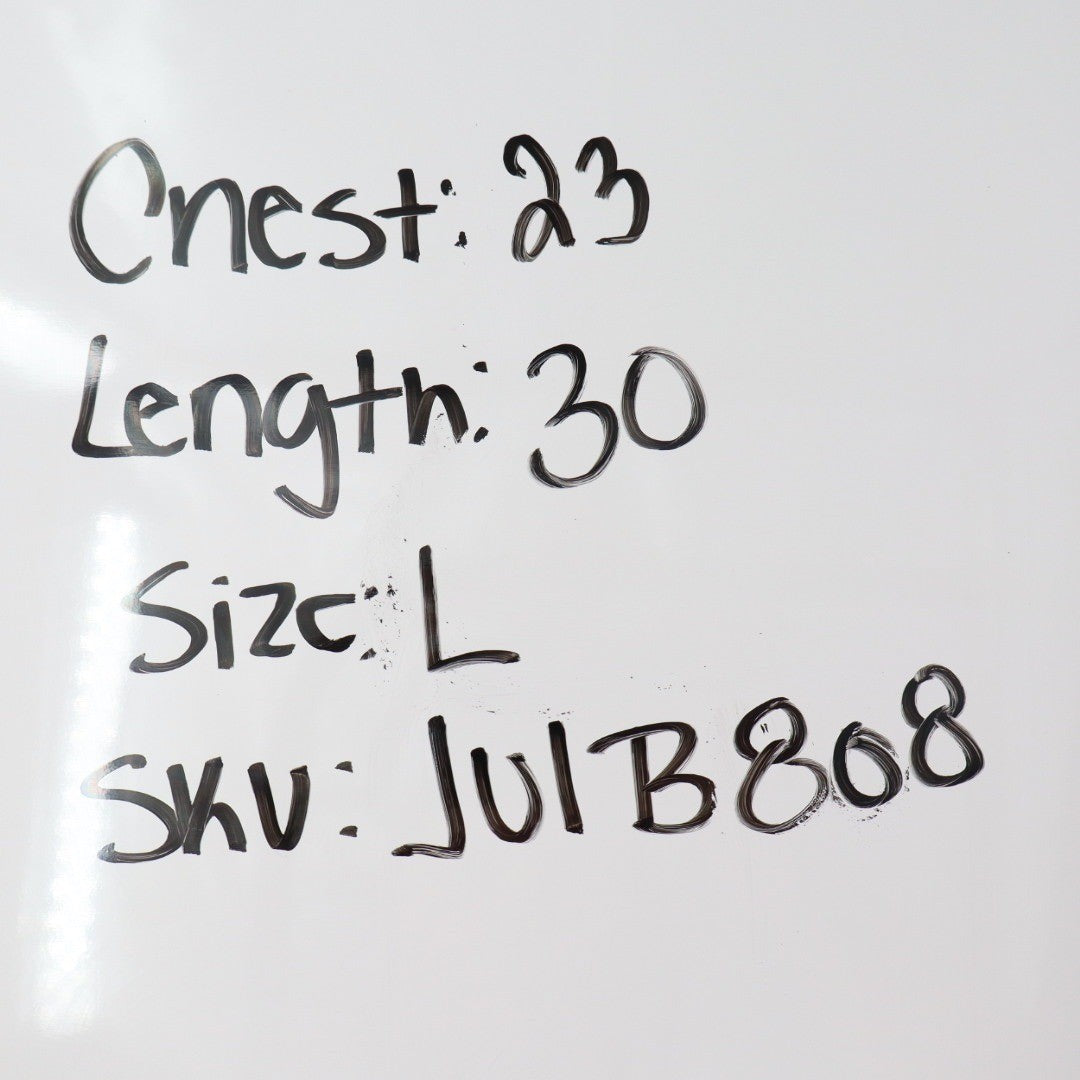 Chest: 23
Length: 30
Size: L
SKU: JUlB808